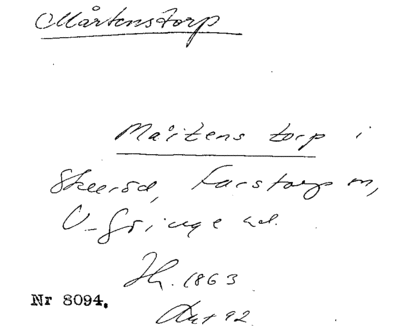 Mårtenstorp
Mårtens torp i
Skeröd, Farstorp sn,
V-Göinge hd.
Jh. 1863
Nr 8094.
Ant 92